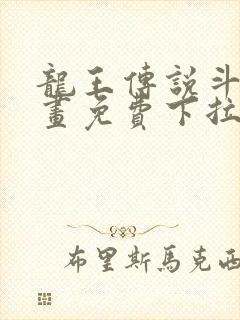 龍王傳說斗
畫免費下拉
布里斯馬克西